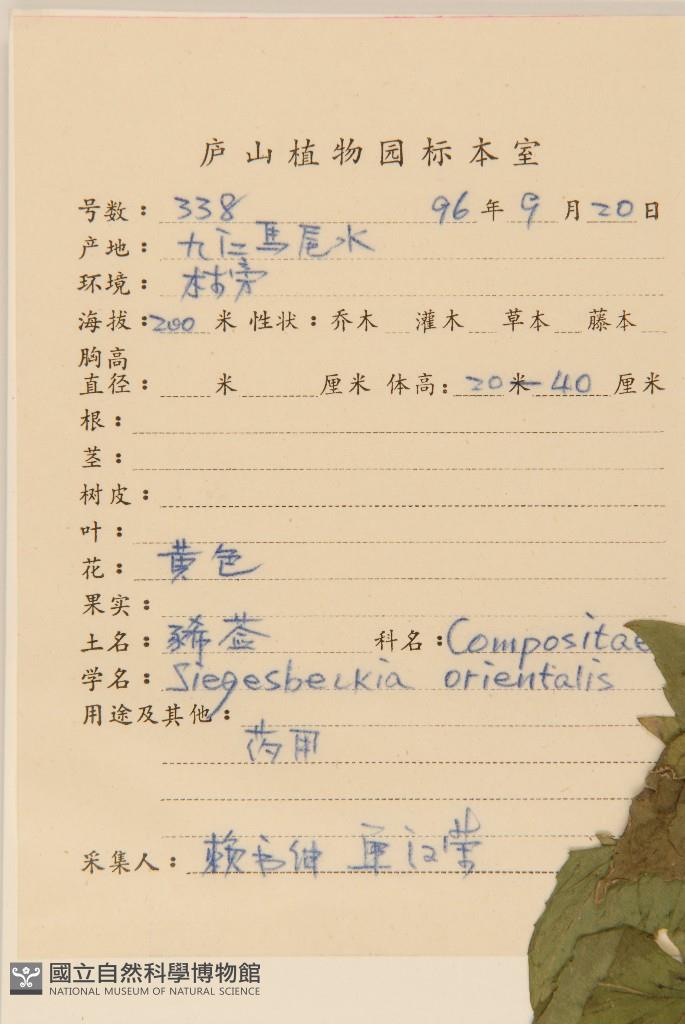 庐山植物园标本室
号数：338 96年9月20日
产地：九仁馬尾水
环境：林旁
海拔：200米 性状：乔木 灌木 草本 藤本
胸高
直径： 米 厘米 体高：20米-40厘米
根：
茎：
树皮：
叶：
花：黄色
果实：
土名：豨莶 科名：Compositae
学名：Siegesbeckia orientalis
用途及其他：
药用
采集人：赖书绅
國立自然科學博物館
NATIONAL MUSEUM OF NATURAL SCIENCE